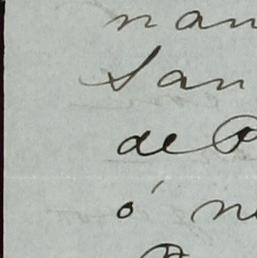 nan
San
de P
ó n